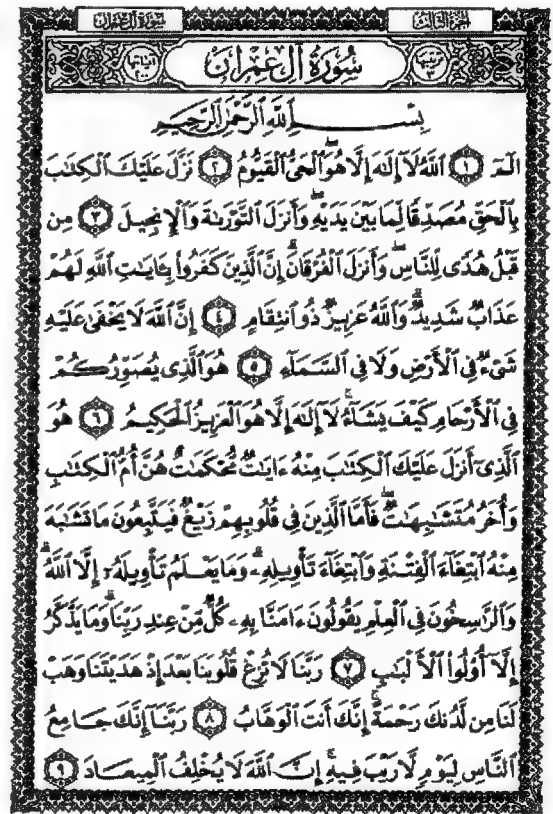 الجزء الثالث
سورة آل عمران
ترتيبها ٣
سُورَةُ آلِ عِمْرَانَ
آياتها ٢٠٠
بِسْمِ اللَّهِ الرَّحْمَٰنِ الرَّحِيمِ
الٓمٓ ١ اللَّهُ لَآ إِلَٰهَ إِلَّا هُوَ ۖ الْحَيُّ الْقَيُّومُ ٢ نَزَّلَ عَلَيْكَ الْكِتَٰبَ
بِالْحَقِّ مُصَدِّقًا لِّمَا بَيْنَ يَدَيْهِ ۖ وَأَنزَلَ التَّوْرَىٰةَ وَالْإِنجِيلَ ٣ مِن
قَبْلُ هُدًى لِّلنَّاسِ ۖ وَأَنزَلَ الْفُرْقَانَ ۗ إِنَّ الَّذِينَ كَفَرُوا بِـَٔايَٰتِ اللَّهِ لَهُمْ
عَذَابٌ شَدِيدٌ ۗ وَاللَّهُ عَزِيزٌ ذُو انتِقَامٍ ٤ إِنَّ اللَّهَ لَا يَخْفَىٰ عَلَيْهِ
شَىْءٌ فِى الْأَرْضِ وَلَا فِى السَّمَآءِ ٥ هُوَ الَّذِى يُصَوِّرُكُمْ
فِى الْأَرْحَامِ كَيْفَ يَشَآءُ ۚ لَآ إِلَٰهَ إِلَّا هُوَ الْعَزِيزُ الْحَكِيمُ ٦ هُوَ
الَّذِىٓ أَنزَلَ عَلَيْكَ الْكِتَٰبَ مِنْهُ ءَايَٰتٌ مُّحْكَمَٰتٌ هُنَّ أُمُّ الْكِتَٰبِ
وَأُخَرُ مُتَشَٰبِهَٰتٌ ۖ فَأَمَّا الَّذِينَ فِى قُلُوبِهِمْ زَيْغٌ فَيَتَّبِعُونَ مَا تَشَٰبَهَ
مِنْهُ ابْتِغَآءَ الْفِتْنَةِ وَابْتِغَآءَ تَأْوِيلِهِۦ ۗ وَمَا يَعْلَمُ تَأْوِيلَهُۥٓ إِلَّا اللَّهُ ۗ
وَالرَّٰسِخُونَ فِى الْعِلْمِ يَقُولُونَ ءَامَنَّا بِهِۦ كُلٌّ مِّنْ عِندِ رَبِّنَا ۗ وَمَا يَذَّكَّرُ
إِلَّآ أُولُوا الْأَلْبَٰبِ ٧ رَبَّنَا لَا تُزِغْ قُلُوبَنَا بَعْدَ إِذْ هَدَيْتَنَا وَهَبْ
لَنَا مِن لَّدُنكَ رَحْمَةً ۚ إِنَّكَ أَنتَ الْوَهَّابُ ٨ رَبَّنَآ إِنَّكَ جَامِعُ
النَّاسِ لِيَوْمٍ لَّا رَيْبَ فِيهِ ۚ إِنَّ اللَّهَ لَا يُخْلِفُ الْمِيعَادَ ٩